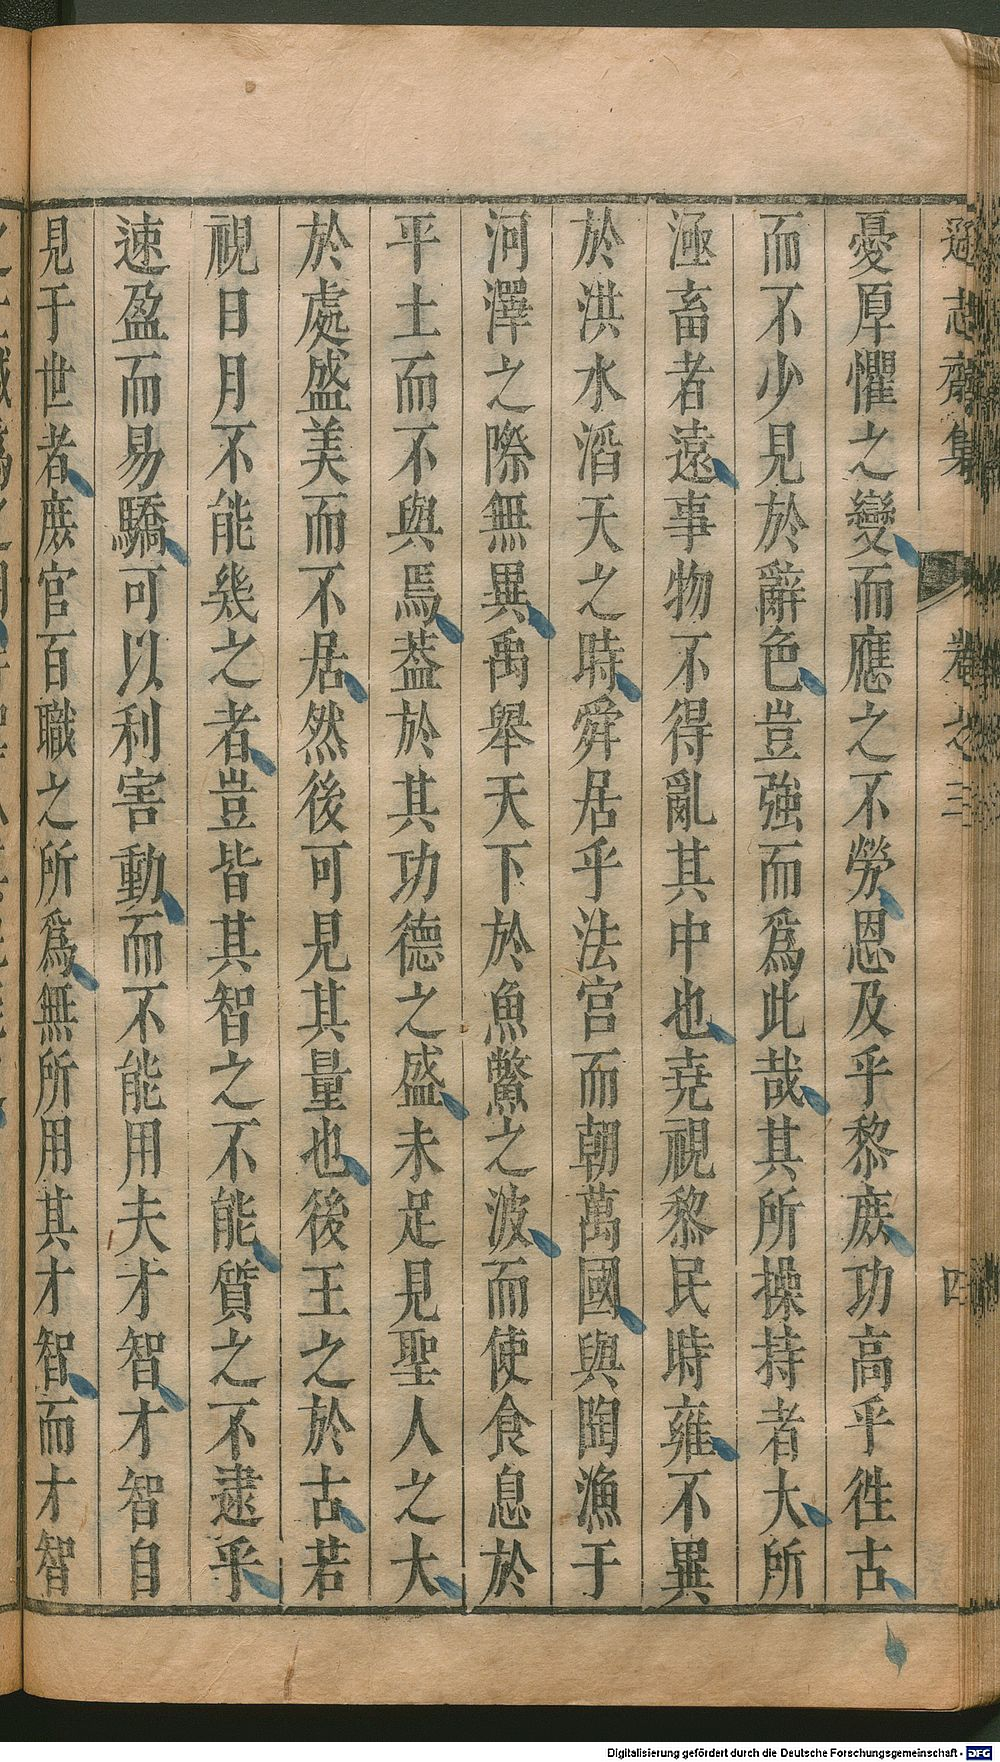 遜志齋集 卷之三 四
憂厚懼之變而應之不勞恩及乎黎庶功高乎徃古
而不少見於辭色豈強而爲此哉其所操持者大所
涵畜者遠事物不得亂其中也堯視黎民時雍不異
於洪水滔天之時舜居乎法宮而朝萬國與陶漁于
河澤之際無異禹舉天下於魚鱉之波而使食息於
平土而不與焉葢於其功德之盛未足見聖人之大
於處盛美而不居然後可見其量也後王之於古若
視日月不能幾之者豈皆其智之不能質之不逮乎
速盈而易驕可以利害動而不能用夫才智才智自
見于世者庶官百職之所爲無所用其才智而才智
Digitalisierung gefördert durch die Deutsche Forschungsgemeinschaft - DFG